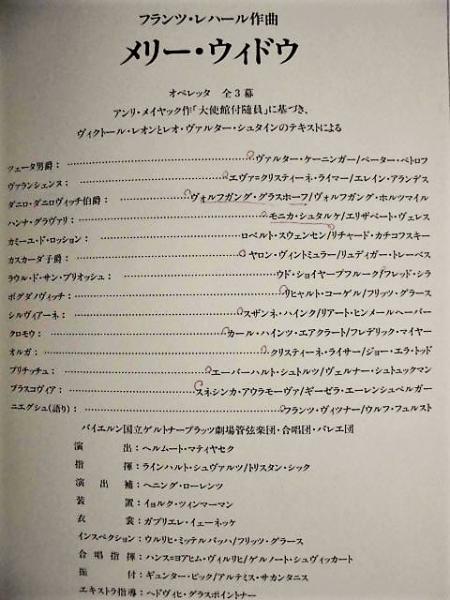 フランツ・レハール作曲
メリー・ウィドウ
オペレッタ 全3幕
アンリ・メイヤック作「大使館付随員」に基づき、
ヴィクトール・レオンとレオ・ヴァルター・シュタインのテキストによる
ツェータ男爵：……ヴァルター・ケーニンガー/ペーター・ペトロフ
ヴァランシェンヌ：……エヴァ=クリスティーネ・ライマー/エレイン・アランデス
ダニロ・ダニロヴィッチ伯爵：……ヴォルフガング・グラスホーフ/ヴォルフガング・ホルツマイル
ハンナ・グラヴァリ：……モニカ・シュタルケ/エリザベート・ヴェレス
カミーユ・ド・ロッション：……ロベルト・スウェンセン/リチャード・カチコフスキー
カスカーダ子爵：……ヤロン・ヴィントミュラー/リュディガー・トレーベス
ラウル・ド・サン・ブリオッシュ：……ウド・ショイヤープフルーク/フレッド・シラ
ボグダノヴィッチ：……リヒャルト・コーゲル/フリッツ・グラース
シルヴィアーネ：……スザンネ・ハインク/リアート・ヒンメールヘーバー
クロモウ：……カール・ハインツ・エアクラート/フレデリック・マイヤー
オルガ：……クリスティーネ・ライサー/ジョー・エラ・トッド
プリチッチュ：……エーバーハルト・シュトルツ/ヴェルナー・シュトュックマン
プラスコヴィア：……スネシンカ・アウラモーヴァ/ギーゼラ・エーレンシュペルガー
ニエグシュ(語り)：……フランツ・ヴィツナー/ウルフ・フュルスト
バイエルン国立ゲルトナープラッツ劇場管弦楽団・合唱団・バレエ団
演出：ヘルムート・マティヤセク
指揮：ラインハルト・シュヴァルツ/トリスタン・シック
演出補：ヘニング・ローレンツ
装置：イョルク・ツィンマーマン
衣裳：ガブリエレ・イェーネッケ
インスペクション：ウルリヒ・ミッテルバッハ/フリッツ・グラース
合唱指揮：ハンス=ヨアヒム・ヴィルリヒ/ゲルノート・シュヴィッカート
振付：ギュンター・ピック/アルテミス・サカンタニス
エキストラ指導：ヘドヴィヒ・グラスポイントナー